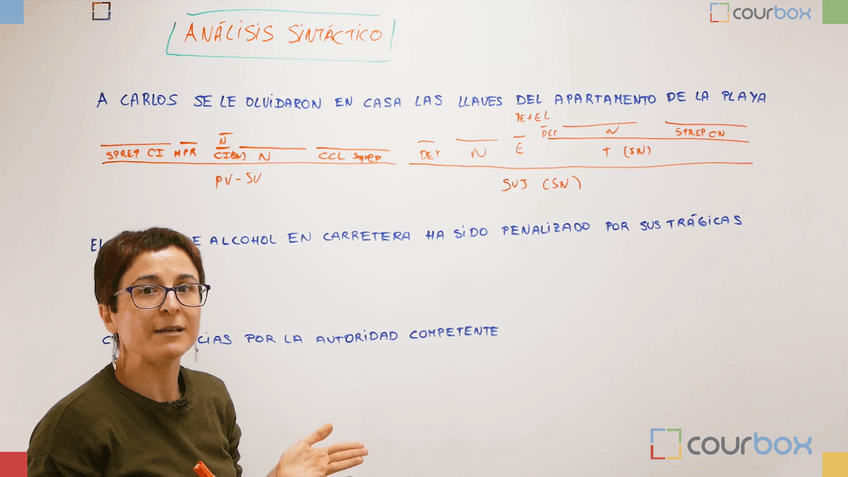 courbox
ANÁLISIS SINTÁCTICO
A CARLOS SE LE OLVIDARON EN CASA LAS LLAVES DEL APARTAMENTO DE LA PLAYA
DE+EL
N
SPREP CI MPR CI(SN) N CCL SPREP DET N E DET N SPREP CN
T (SN)
PV-SV SUJ (SN)
EL ALCOHOL EN CARRETERA HA SIDO PENALIZADO POR SUS TRÁGICAS
POR LA AUTORIDAD COMPETENTE
courbox